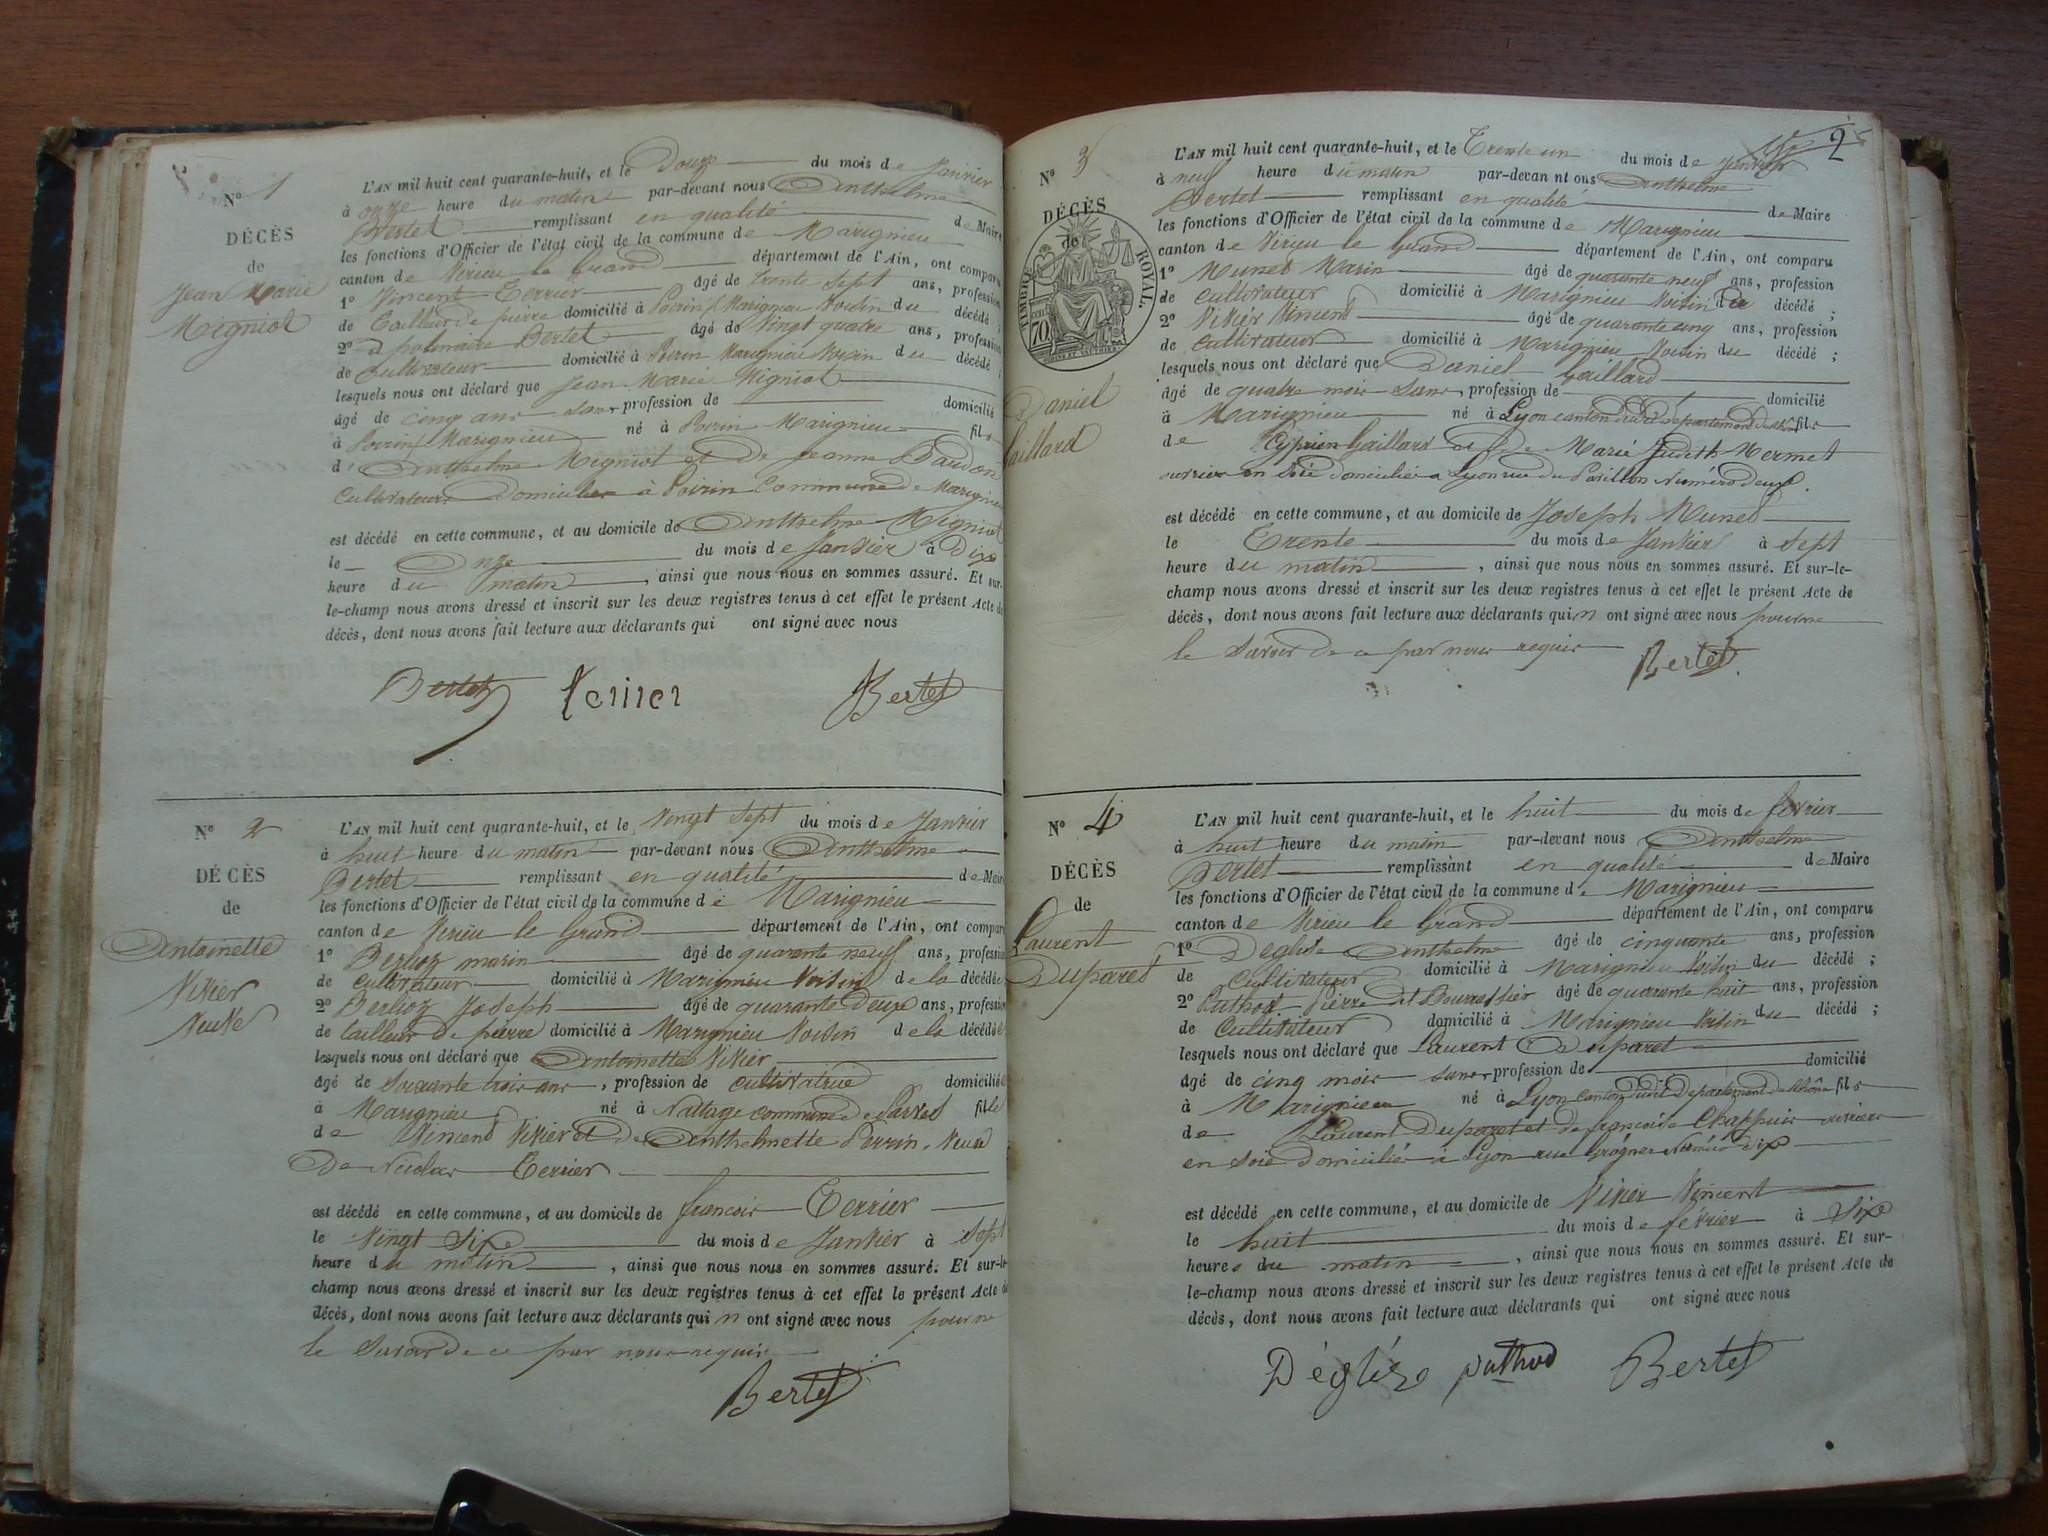 N° 1
DÉCÈS
de
Jean Marie
Migniot
L'AN mil huit cent quarante-huit, et le Douze du mois de Janvier
à onze heure du matin par-devant nous Anthelme
Bertet remplissant en qualité de Maire
les fonctions d'Officier de l'état civil de la commune de Marignieu
canton de Virieu le Grand département de l'Ain, ont comparu
1° Vincent Terrier âgé de trente sept ans, profession
de Tailleur de pierre domicilié à Poirin Marignieu Voisin du décédé ;
2° Apolinaire Bertet âgé de vingt quatre ans, profession
de Cultivateur domicilié à Poirin Marignieu Voisin du décédé ;
lesquels nous ont déclaré que Jean Marie Migniot
âgé de cinq ans sans profession de domicilié
à Poirin Marignieu né à Poirin Marignieu fils
d' Anthelme Migniot et de Jeanne Baudon
Cultivateurs Domiciliés à Poirin Commune de Marignieu
est décédé en cette commune, et au domicile de Anthelme Migniot
le Onze du mois de Janvier à Dix
heure du matin, ainsi que nous nous en sommes assuré. Et sur-
le-champ nous avons dressé et inscrit sur les deux registres tenus à cet effet le présent Acte de
décès, dont nous avons fait lecture aux déclarants qui ont signé avec nous
Bertet Terrier Bertet
N° 2
DÉCÈS
de
Antoinette
Vivier
Veuve
L'AN mil huit cent quarante-huit, et le Vingt Sept du mois de Janvier
à huit heure du matin par-devant nous Anthelme
Bertet remplissant en qualité de Maire
les fonctions d'Officier de l'état civil de la commune de Marignieu
canton de Virieu le Grand département de l'Ain, ont comparu
1° Berlioz marin âgé de quarante neuf ans, profession
de cultivateur domicilié à Marignieu Voisin de la décédée
2° Berlioz Joseph âgé de quarante deux ans, profession
de tailleur de pierre domicilié à Marignieu Voisin de la décédé
lesquels nous ont déclaré que Antoinette Vivier
âgé de Soixante trois ans, profession de cultivatrice domicilié
à Marignieu né à Nattage commune de Parves fille
de Vincent Vivier et de Anthelmette Perrin, Veuve
De Nicolas Terrier
est décédé en cette commune, et au domicile de francois Terrier
le Vingt Six du mois de Janvier à Sept
heure du matin, ainsi que nous nous en sommes assuré. Et sur-le-
champ nous avons dressé et inscrit sur les deux registres tenus à cet effet le présent Acte de
décès, dont nous avons fait lecture aux déclarants qui n ont signé avec nous pour ne
le Savoir de ce par nous requis
Bertet
2
N° 3
DÉCÈS
de
TIMBRE ROYAL
70
Daniel
Gaillard
L'AN mil huit cent quarante-huit, et le Trente un du mois de Janvier
à neuf heure du matin par-devan nt ous Anthelme
Bertet remplissant en qualité de Maire
les fonctions d'Officier de l'état civil de la commune de Marignieu
canton de Virieu le Grand département de l'Ain, ont comparu
1° Munet Marin âgé de quarante neuf ans, profession
de cultivateur domicilié à Marignieu Voisin du décédé ;
2° Vivier Vincent âgé de quarante cinq ans, profession
de cultivateur domicilié à Marignieu Voisin du décédé ;
lesquels nous ont déclaré que Daniel Gaillard
âgé de quatre mois Sans, profession de domicilié
à Marignieu né à Lyon canton dudit Departement du Rhône fils
de Cyprien Gaillard et de Marie Judith Mermet
ouvrier en Soie domiciliée a Lyon rue du Pavillon Numéro deux.
est décédé en cette commune, et au domicile de Joseph Munet
le Trente du mois de Janvier à Sept
heure du matin, ainsi que nous nous en sommes assuré. Et sur-le-
champ nous avons dressé et inscrit sur les deux registres tenus à cet effet le présent Acte de
décès, dont nous avons fait lecture aux déclarants qui n ont signé avec nous pour ne
le Savoir de ce par nous requis
Bertet.
N° 4
DÉCÈS
de
Laurent
Duparet
L'AN mil huit cent quarante-huit, et le huit du mois de fevrier
à huit heure du matin par-devant nous Anthelme
Bertet remplissant en qualité de Maire
les fonctions d'Officier de l'état civil de la commune de Marignieu
canton de Virieu le Grand département de l'Ain, ont comparu
1° Deglise Anthelme âgé de cinquante ans, profession
de Cultivateur domicilié à Marignieu Voisin du décédé ;
2° Puthod Pierre dit Bourressier âgé de quarante huit ans, profession
de Cultivateur domicilié à Marignieu Voisin du décédé ;
lesquels nous ont déclaré que Laurent Duparet
âgé de cinq mois sans profession de domicilié
à Marignieu né à Lyon Canton dudit Departement du Rhône fils
de Laurent Duparet et de francoise Chappuis ouvriers
en Soie domiciliés à Lyon rue Grognet Numéro dix
est décédé en cette commune, et au domicile de Vivier Vincent
le huit du mois de février à Six
heures du matin, ainsi que nous nous en sommes assuré. Et sur-
le-champ nous avons dressé et inscrit sur les deux registres tenus à cet effet le présent Acte de
décès, dont nous avons fait lecture aux déclarants qui ont signé avec nous
Déglise puthod Bertet